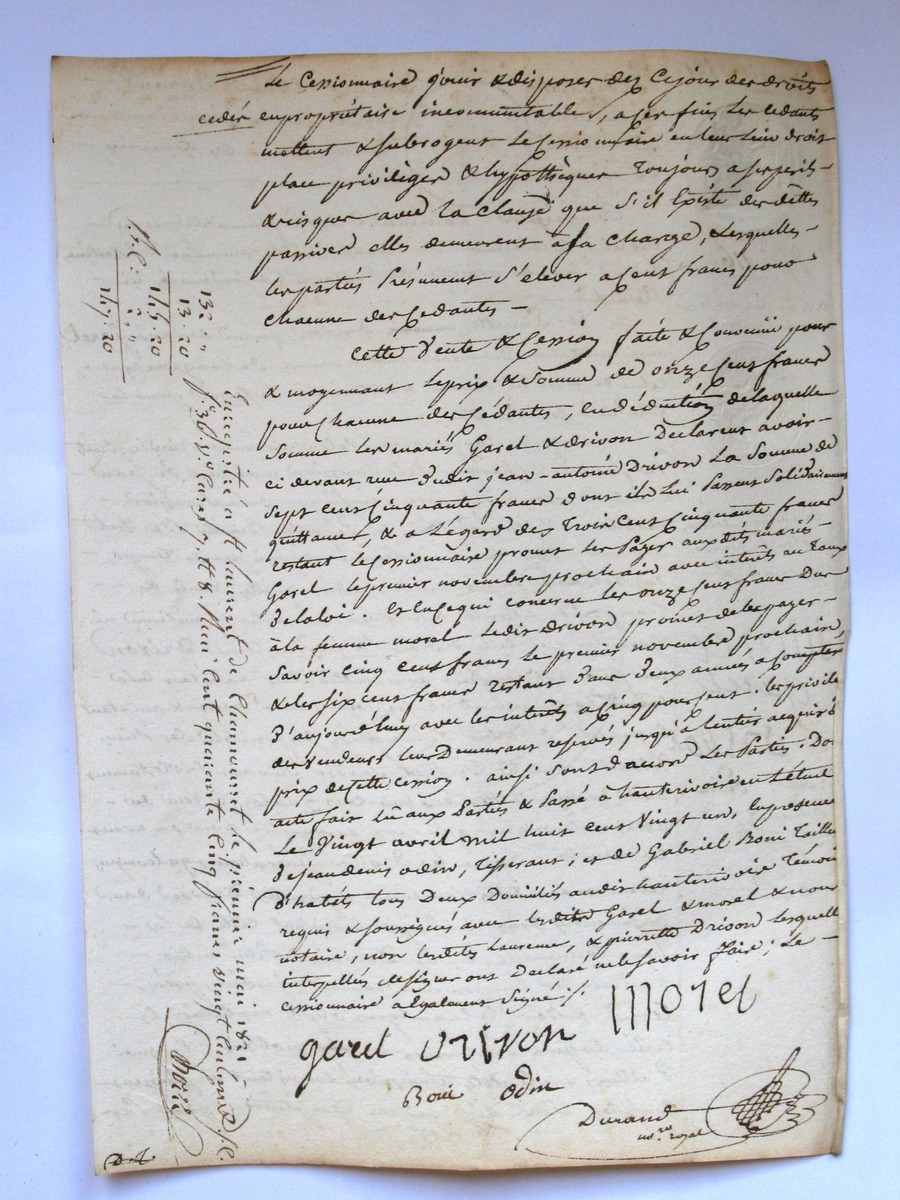 Le Cessionnaire jouir & disposer dez Cejour des droits
cedés enpropriétaire incommutable, a ces fins les cedants
mettent & subrogent Le Cessionnaire en leur lieu droit
place privilèges & hypothèques Toujours a ses perils
& risques avec la Clause que S'il Existe des dettes
passives elles demeurent à sa charge, Lesquelles
les parties Présument S'elever a Cent francs pour
Chacune des Cedantes —
Cette Vente & Cession faite & Convenüe pour
& moyennant Le prix & Somme de onze Cent francs
pour Chacune des Cédantes, en déduction de laquelle
Somme les mariés Garel & drivon Declarent avoir
ci devant reçu dudit jean-antoine Drivon La Somme de
Sept cent Cinquante francs dont ils Lui Passent Solidairement
quittance, & a L'égard des Trois Cent Cinquante francs
restant Le Cessionnaire promet Les Payer aux dits mariés
Garel le premier novembre prochain avec intérêts au Taux
de la loi. Et en Ce qui concerne les onze Cent francs Dus
à la femme morel Ledit drivon promet de les payer
Savoir Cinq Cent francs Le premier novembre prochain
& les Six Cent francs restant dans deux années a Compter
d'aujourd'huy avec les intérêts a Cinq pour Cent. les privile
des vendeurs leur Demeurant reservés jusqu'à l'entier acquis d
prix de Cette Cession. ainsi Sont d'accord Les Parties. Do
acte fait lû aux Parties & Passé à hauterivoire en L'étude
Le Vingt avril Mil huit Cent Vingt un, En presence
de jean denis odin, Tisserant; et de Gabriel Boni Taille
D'habits tous Deux Domiciliés audit hauterivoire Témoi
requis & soussignés avec lesdits Garel & morel & nous
notaire, non lesdites laurence, & pierrette Drivon lesquell
interpellés de signer ont Declaré ne le Savoir faire; Le
Cessionnaire a Egalement Signé ./.
garel drivon Morel
Boni odin
Durand
no.re royal
Enregistré à St laurent de Chamousset le premier mai 1821
f.° 36 v.° Cases 7 et 8. Reçu Cent quarante Cinq francs vingt Centimes
132 "
13.20
145.20
2 "
147.20